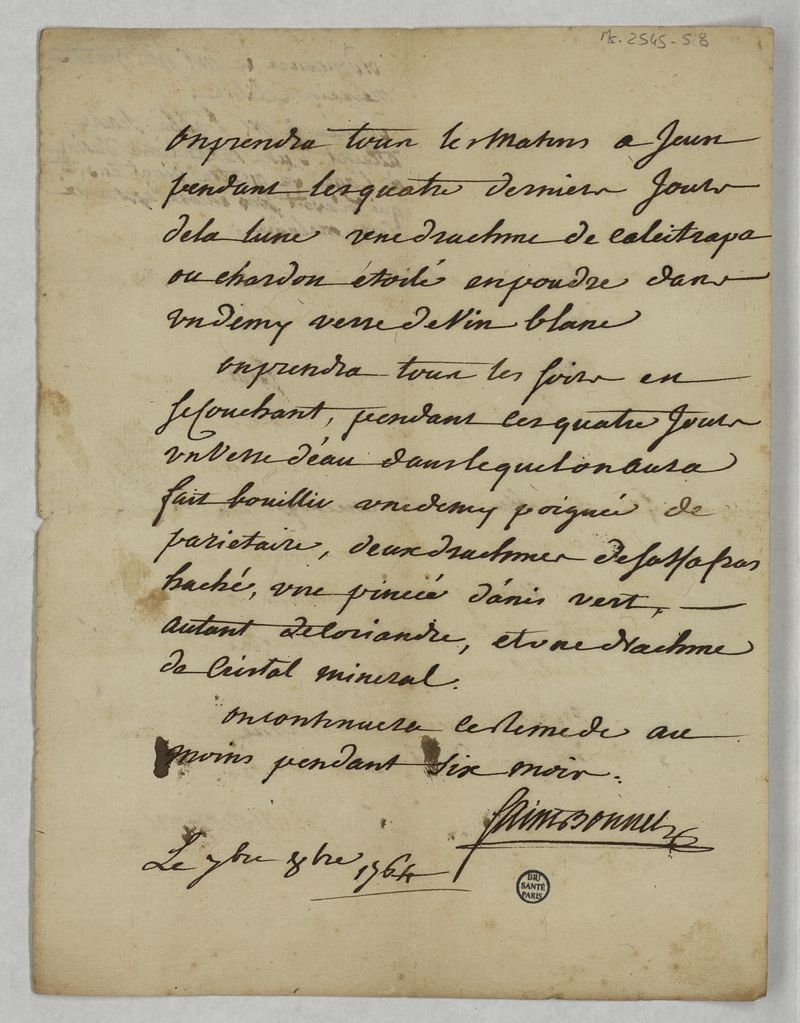 Ms-2545-58
on prendra tous les matins a Jeun
pendant les quatre derniers Jours
de la lune vne drachme de calcitrapa
ou chardon étoilé en poudre dans
vn demy verre de Vin blanc
on prendra tous les soirs en
se Couchant, pendant ces quatre Jours
vn Verre d'éau dans lequel on aura
fait bouillir vne demy poignée de
parietaire, deux drachmes de Sassafras
haché, vne pincée d'ánis vert,
autant de Coriandre, et vne drachme
de Cristal mineral.
on continuera ce Remede au
moins pendant Six mois.
Saint Bonnet
Le 8bre 1764
BIU
SANTÉ
PARIS